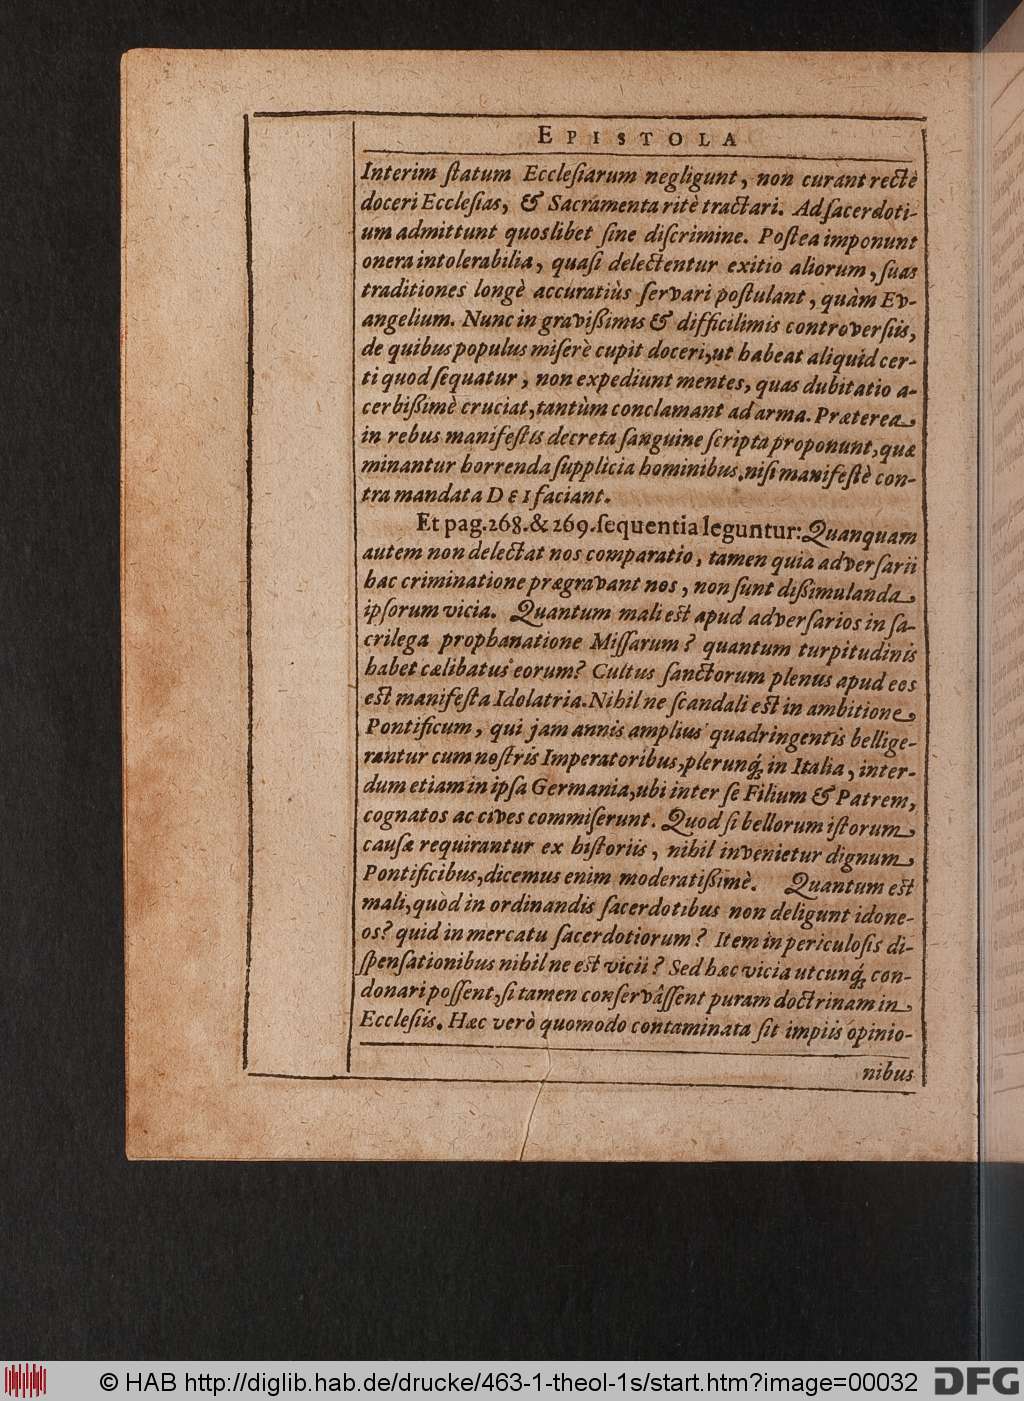 EPISTOLA
Interim ſtatum Eccleſiarum negligunt, non curant rectè
doceri Eccleſias, & Sacramenta ritè tractari. Ad ſacerdoti-
um admittunt quoslibet ſine diſcrimine. Poſtea imponunt
onera intolerabilia, quaſi delectentur exitio aliorum, ſuas
traditiones longè accuratiùs ſervari poſtulant, quàm Ev-
angelium. Nunc in graviſſimis & difficilimis controverſiis,
de quibus populus miſerè cupit doceri, ut habeat aliquid cer-
ti quod ſequatur, non expediunt mentes, quas dubitatio a-
cerbiſſimè cruciat, tantùm conclamant ad arma. Præterea
in rebus manifeſtis decreta ſanguine ſcripta proponunt, quæ
minantur horrenda ſupplicia hominibus, niſi manifeſtè con-
tra mandata DEI faciant.
Et pag. 268. & 269. ſequentia leguntur: Quanquam
autem non delectat nos comparatio, tamen quia adverſarii
hac criminatione prægravant nos, non ſunt diſſimulanda
ipſorum vicia. Quantum mali est apud adverſarios in ſa-
crilega prophanatione Miſſarum? quantum turpitudinis
habet cælibatus eorum? Cultus ſanctorum plenus apud eos
est manifeſta Idolatria. Nihil ne ſcandali est in ambitione
Pontificum, qui jam annis amplius quadringentis bellige-
rantur cum noſtris Imperatoribus, plerunq́; in Italia, inter-
dum etiam in ipſa Germania, ubi inter ſe Filium & Patrem,
cognatos ac cives commiſerunt. Quod ſi bellorum iſtorum
cauſæ requirantur ex hiſtoriis, nihil invenietur dignum
Pontificibus, dicemus enim moderatiſſimè. Quantum est
mali, quòd in ordinandis ſacerdotibus non deligunt idone-
os? quid in mercatu ſacerdotiorum? Item in periculoſis di-
ſpenſationibus nihil ne est vicii? Sed hæc vicia utcunq́; con-
donari poſſent, ſi tamen conſervâſſent puram doctrinam in
Eccleſiis. Hæc verò quomodo contaminata ſit impiis opinio-
nibus
© HAB http://diglib.hab.de/drucke/463-1-theol-1s/start.htm?image=00032
DFG